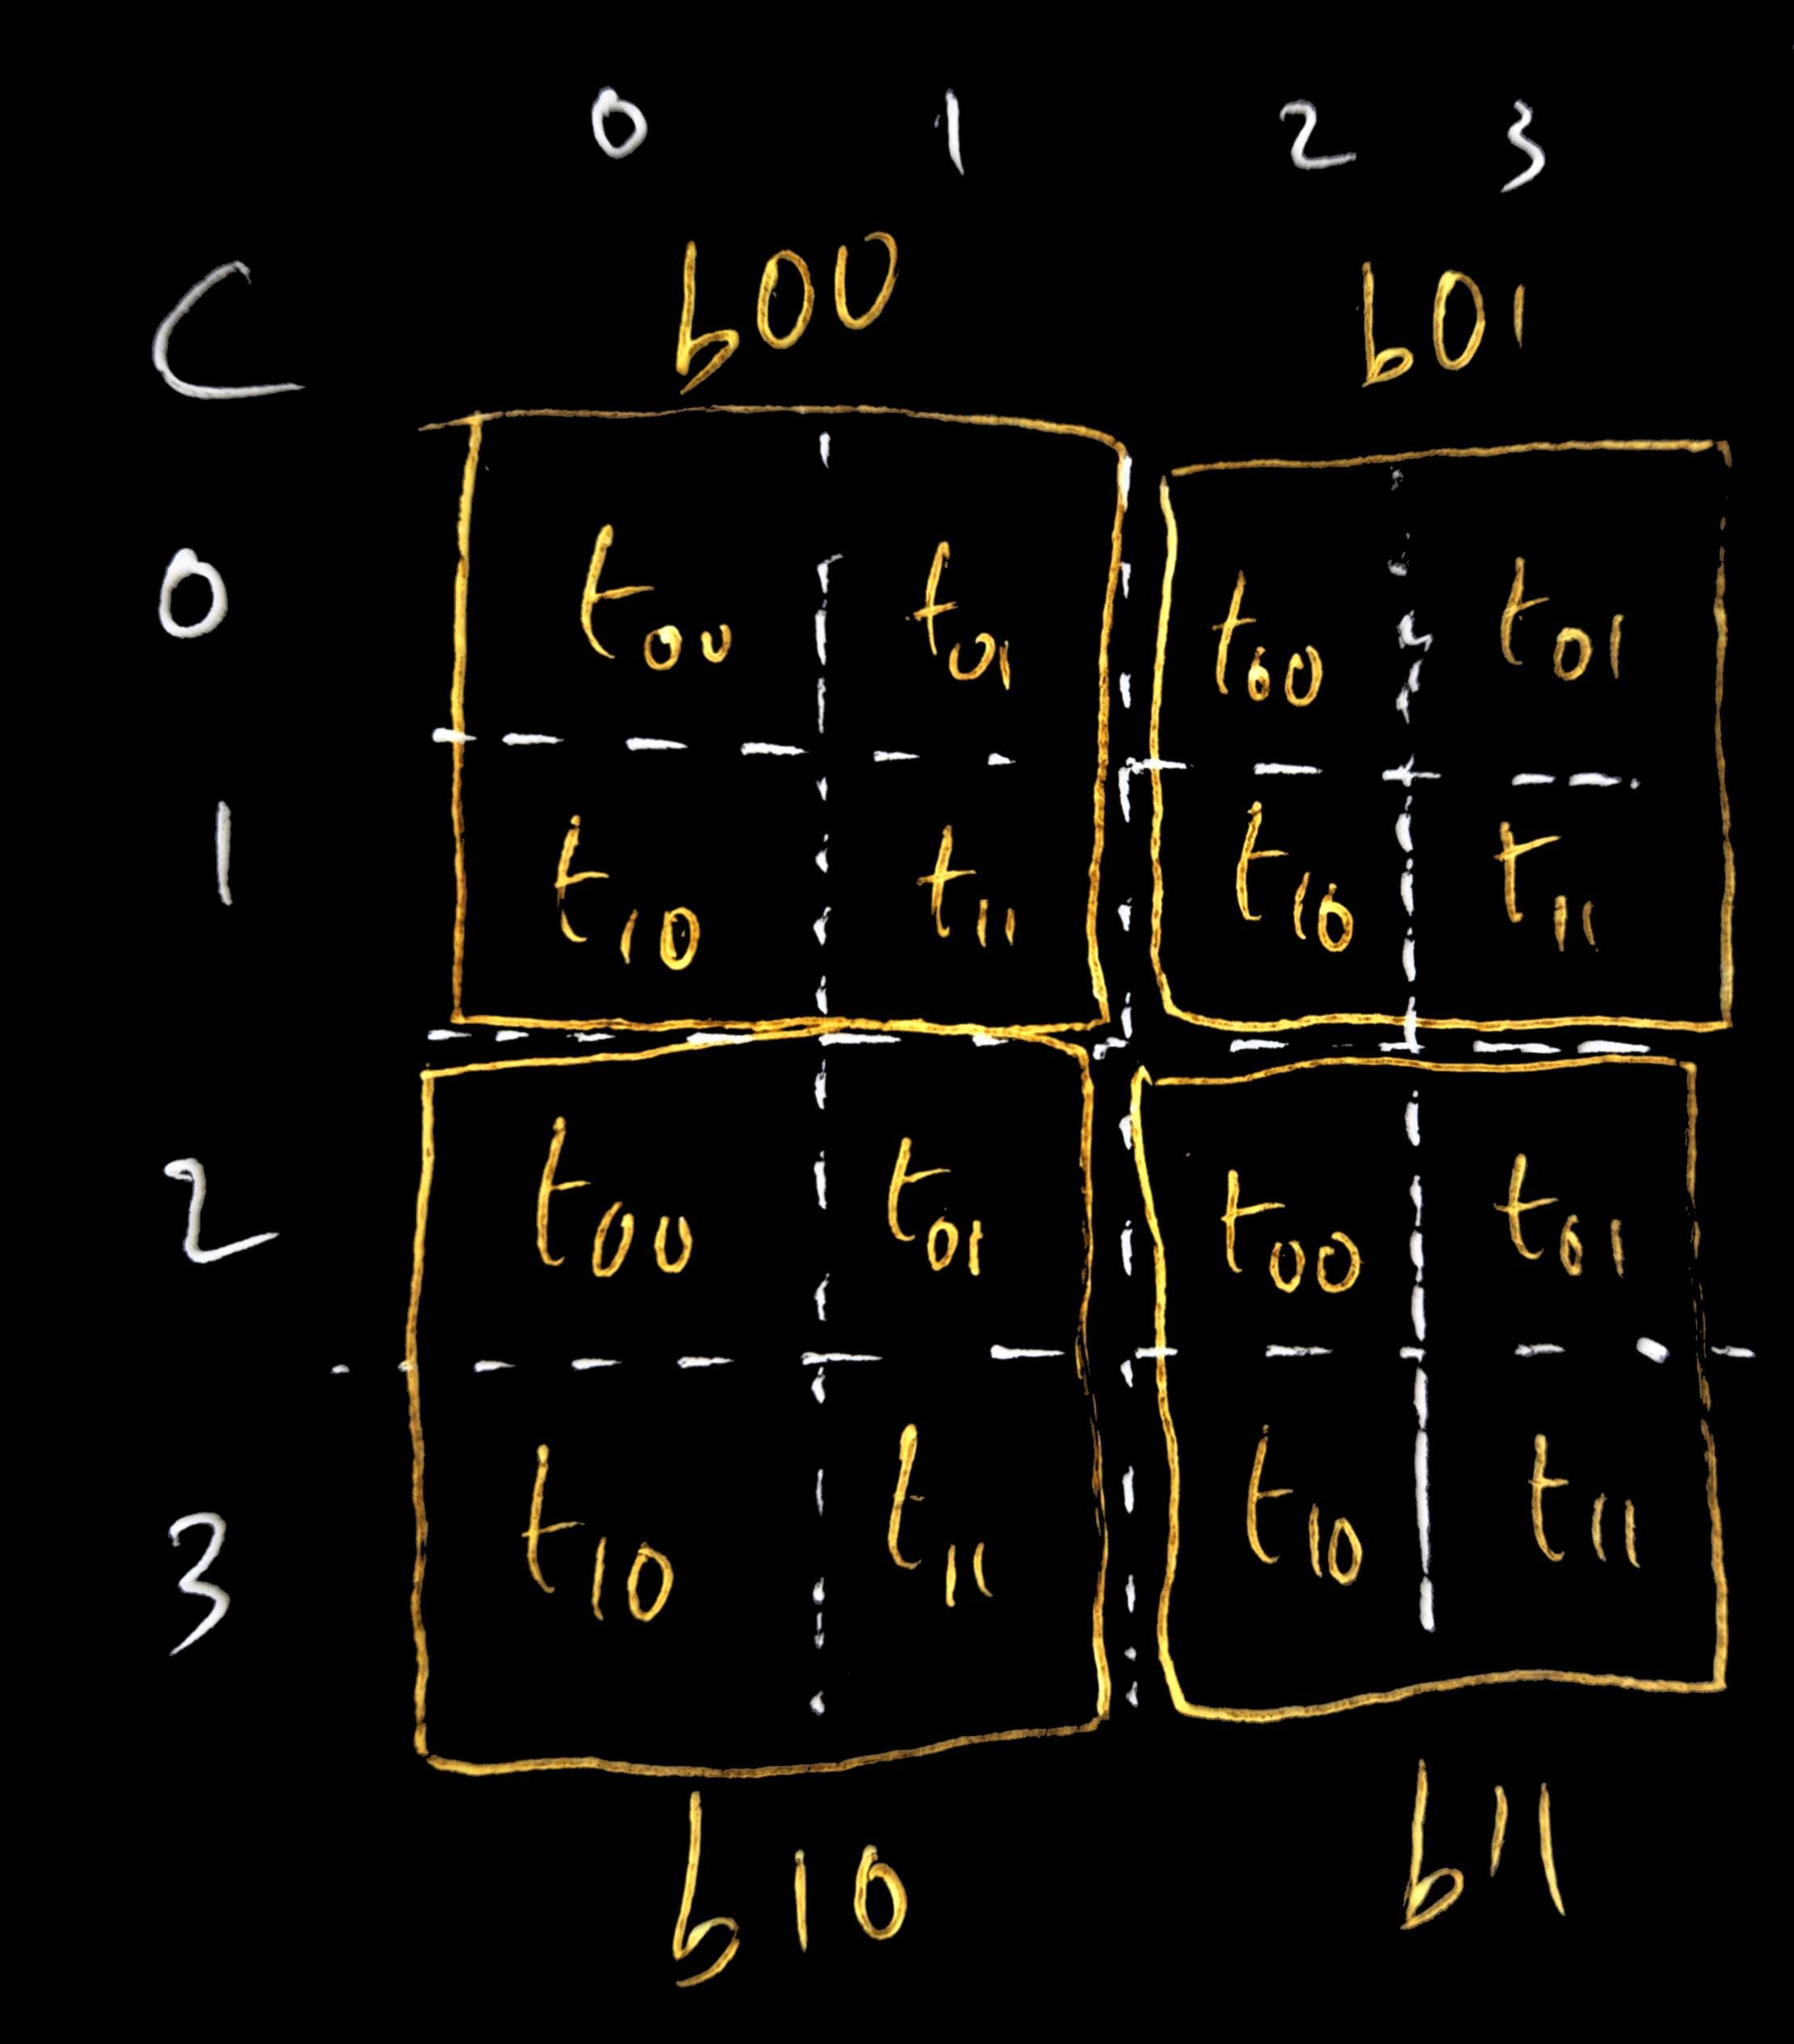 0 1 2 3
C b00 b01
0 t00 t01 t00 t01
1 t10 t11 t10 t11
2 t00 t01 t00 t01
3 t10 t11 t10 t11
b10 b11